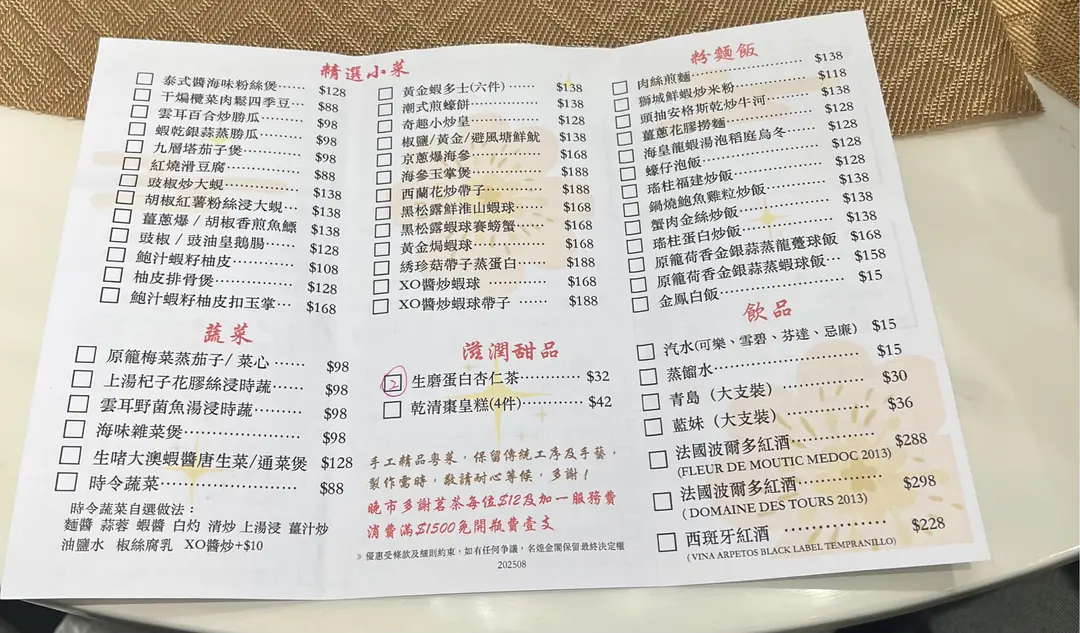 精選小菜
泰式醬海味粉絲煲······ $128
干煸欖菜肉鬆四季豆··· $88
雲耳百合炒勝瓜········· $98
蝦乾銀蒜蒸勝瓜········· $98
九層塔茄子煲············ $98
紅燒滑豆腐··············· $88
豉椒炒大蜆··············· $138
胡椒紅薯粉絲浸大蜆··· $138
薑蔥爆 / 胡椒香煎魚鰾 $138
豉椒 / 豉油皇鵝腸······ $128
鮑汁蝦籽柚皮············ $108
柚皮排骨煲··············· $128
鮑汁蝦籽柚皮扣玉掌··· $168
黃金蝦多士(六件)······ $138
潮式煎蠔餅··············· $138
奇趣小炒皇··············· $128
椒鹽/黃金/避風塘鮮魷 $138
京蔥爆海參··············· $168
海參玉掌煲··············· $188
西蘭花炒帶子············ $188
黑松露鮮淮山蝦球······ $168
黑松露蝦球賽螃蟹······ $168
黃金焗蝦球··············· $168
綉珍菇帶子蒸蛋白······ $188
XO醬炒蝦球 ············ $168
XO醬炒蝦球帶子 ······ $188
粉麵飯
肉絲煎麵·················· $138
獅城鮮蝦炒米粉········· $118
頭抽安格斯乾炒牛河··· $138
薑蔥花膠撈麵············ $128
海皇龍蝦湯泡稻庭烏冬··· $128
蠔仔泡飯·················· $128
瑤柱福建炒飯············ $128
鍋燒鮑魚雞粒炒飯······ $138
蟹肉金絲炒飯············ $138
瑤柱蛋白炒飯············ $138
原籠荷香金銀蒜蒸龍躉球飯 $168
原籠荷香金銀蒜蒸蝦球飯··· $158
金鳳白飯·················· $15
蔬菜
原籠梅菜蒸茄子/ 菜心 ······ $98
上湯杞子花膠絲浸時蔬······ $98
雲耳野菌魚湯浸時蔬········· $98
海味雜菜煲····················· $98
生啫大澳蝦醬唐生菜/通菜煲 $128
時令蔬菜························ $88
時令蔬菜自選做法：
麵醬 蒜蓉 蝦醬 白灼 清炒 上湯浸 薑汁炒
油鹽水 椒絲腐乳 XO醬炒+$10
滋潤甜品
2 生磨蛋白杏仁茶············ $32
乾清棗皇糕(4件)············ $42
手工精品粵菜，保留傳統工序及手藝，
製作需時，敬請耐心等候，多謝！
晚市多謝茗茶每位$12及加一服務費
消費滿$1500免開瓶費壹支
» 優惠受條款及細則約束，如有任何爭議，名煌金閣保留最終決定權
202508
飲品
汽水(可樂、雪碧、芬達、忌廉) $15
蒸餾水························ $15
青島（大支裝）············ $30
藍妹（大支裝）············ $36
法國波爾多紅酒··············· $288
(FLEUR DE MOUTIC MEDOC 2013)
法國波爾多紅酒··············· $298
( DOMAINE DES TOURS 2013)
西班牙紅酒 ··················· $228
(VINA ARPETOS BLACK LABEL TEMPRANILLO)